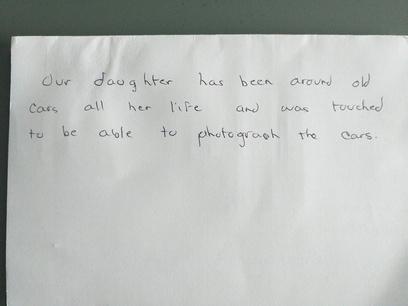 Our daughter has been around old
cars all her life and was touched
to be able to photograph the cars.